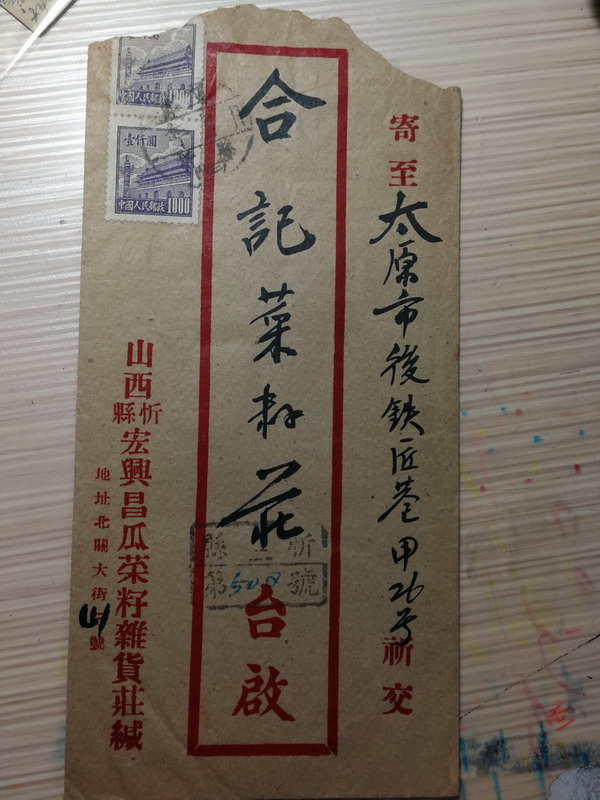 寄至太原市後鉄匠巷甲26号祈交
合記菜籽莊台啟
忻 縣
第508號
山西忻縣宏興昌瓜菜籽雜貨莊緘
地址北關大街 號
壹仟圓
中國人民郵政 1000
中國人民郵政